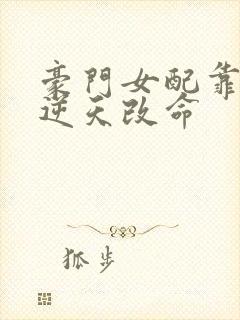 豪門女配靠
逆天改命
狐步